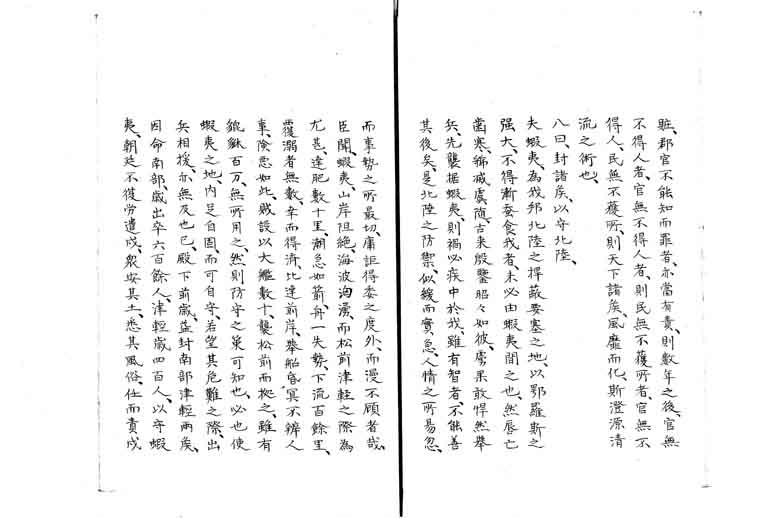 賍、郡官不能知而罪者、亦當有責、則數年之後、官無
不得人者、官無不得人者、則民無不獲所者、官無不
得人、民無不獲所、則天下諸矦、風靡而化、斯澄源清
流之術也、
八曰、封諸矦、以守北陸、
夫蝦夷、為我邦北陸之捍蔽要塞之地、以鄂羅斯之
强大、不得漸蚕食我者、未必由蝦夷間之也、然唇亡
齒寒、虢減虞隨、古来殷鑒昭々如彼、虜果敢悍然舉
兵、先襲据蝦夷、則禍必疾中於我、雖有智者、不能善
其後矣、是北陸之防禦、似緩而實急、人情之所易忽、
而事勢之所最切、庸詎得委之度外、而漫不顧者哉、
臣聞、蝦夷、山岸阻絶、海波洶湧、而松前津輕之際為
尤甚、達肥數十里、潮急如箭、舟一失勢、下流百餘里、
覆溺者無數、幸而得濟、比達前岸、舉船昏冥不辨人
事、險惡如此、賊設以大艦數十、襲松前而拠之、雖有
貔貅百万、無所用之、然則防守之策可知也、必也使
蝦夷之地、内足自固、而可自守、若望其危難之際、出
兵相援、亦無及也已、殿下前歲益封南部津輕兩矦、
因命南部、歲出卒六百餘人、津輕歲四百人、以守蝦
夷、朝廷不復勞遣戍、衆安其土、悉其風俗、仕而責戍